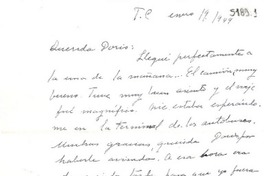 5189.1
T.C enero/9/949
Querida Doris:
Llegué perfectamente a
la una de la mañana... El camión, muy
bueno. Tuve muy buen asiento y el viaje
fué magnífico. me estaba esperando
me en la terminal de los autobuses.
Muchas gracias, querida por
haberle avisado. A esa hora era
que yo fuera